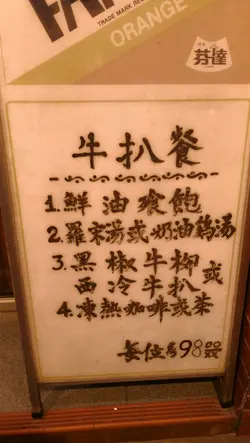 FAN
TRADE MARK RE
ORANGE
芬達
牛扒餐
1.鮮油飱飽
2.羅宋湯或奶油鷄湯
3.黑椒牛柳或
西冷牛扒
4.凍熱咖啡或茶
每位$98